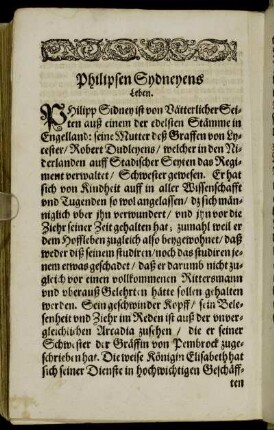 Philipsen Sydneyens
Leben.
PHilipp Sidney ist von Vätterlicher Sei-
ten auß einem der edelsten Stämme in
Engelland: seine Mutter deß Graffen von Ly-
cester/ Robert Dudleyens/ welcher in den Ni-
derlanden auff Stadischer Seyten das Regi-
ment verwaltet/ Schwester gewesen. Er hat
sich von Kindheit auff in aller Wissenschafft
vnd Tugenden so wol angelassen/ dz sich män-
niglich vber jhn verwundert/ vnd jhn vor die
Ziehr seiner Zeit gehalten hat; zumahl weil er
dem Hoffleben zugleich also beygewohnet/ daß
weder diß seinem studiren/ noch das studiren je-
nem etwas geschadet/ daß er darumb nicht zu-
gleich vor einen vollkommenen Rittersmann
vnd vberauß Gelehrten hätte sollen gehalten
werden. Sein geschwinder Kopff/ sein Bele-
senheit vnd Ziehr im Reden ist auß der vnver-
gleichlichen Arcadia zusehen/ die er seiner
Schwester der Gräffin von Pembrock zuge-
schrieben hat. Die weise Königin Elisabeth hat
sich seiner Dienste in hochwichtigen Geschäff-
ten